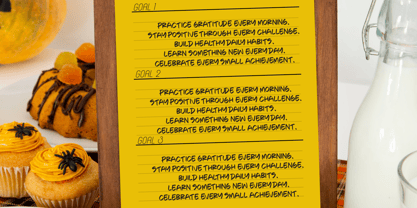 GOAL 1
PRACTICE GRATITUDE EVERY MORNING.
STAY POSITIVE THROUGH EVERY CHALLENGE.
BUILD HEALTHY DAILY HABITS.
LEARN SOMETHING NEW EVERY DAY.
CELEBRATE EVERY SMALL ACHIEVEMENT.
GOAL 2
PRACTICE GRATITUDE EVERY MORNING.
STAY POSITIVE THROUGH EVERY CHALLENGE.
BUILD HEALTHY DAILY HABITS.
LEARN SOMETHING NEW EVERY DAY.
CELEBRATE EVERY SMALL ACHIEVEMENT.
GOAL 3
PRACTICE GRATITUDE EVERY MORNING.
STAY POSITIVE THROUGH EVERY CHALLENGE.
BUILD HEALTHY DAILY HABITS.
LEARN SOMETHING NEW EVERY DAY.
CELEBRATE EVERY SMALL ACHIEVEMENT.